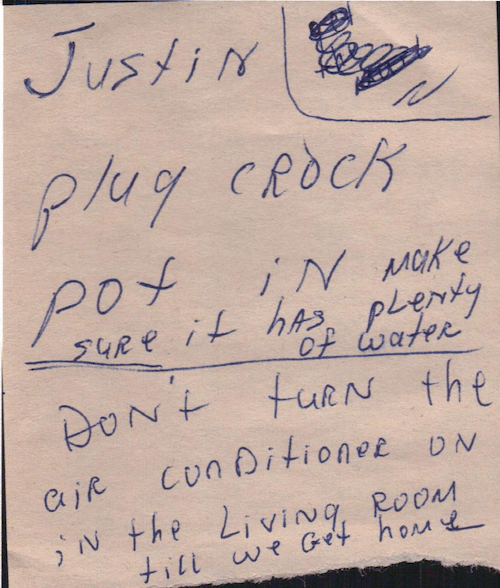 Justin
plug CROCK
POT iN MAKE
SURE it hAS PLENTY
of WATER
DON't tURN the
aiR CONDitioNER ON
iN the LiviNg ROOM
till we Get home